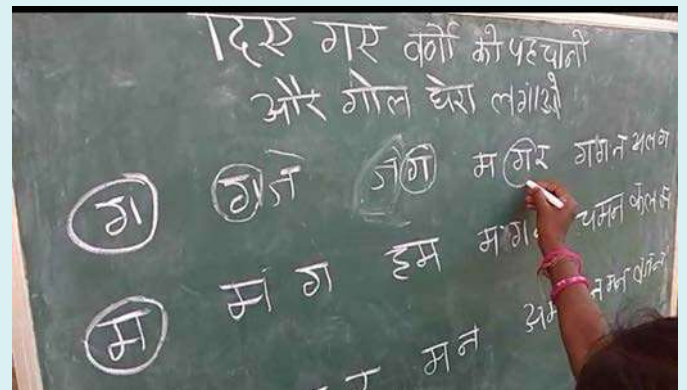 दिए गए वर्णो को पहचानो
और गोल घेरा लगाओ
ग गज जग मगर गगन अलग
म मंग हम मगन चमन कलम
मन